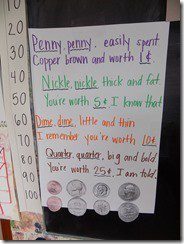 Penny, penny, easily spent
Copper brown and worth 1¢
Nickle, nickle thick and fat.
You're worth 5¢ I know that
Dime, dime, little and thin
I remember you're worth 10¢
Quarter, quarter, big and bold
You're worth 25¢, I am told.
10
20
30
40
50
60
70
80
90
100